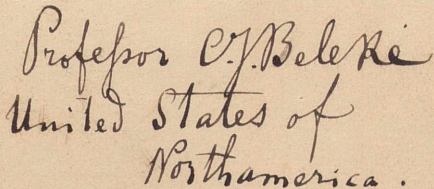 Professor C.J. Beleke
United States of
Northamerica.